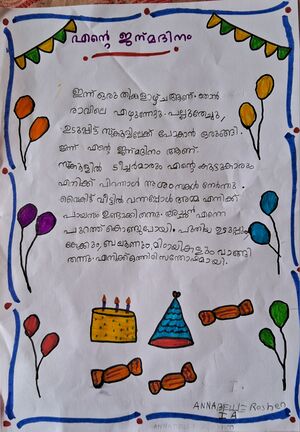 എന്റെ ജന്മദിനം
ഇന്ന് ഒരു തിങ്കളാഴ്ച ആണ്. ഞാൻ
രാവിലെ എഴുന്നേറ്റു. പല്ലുതേച്ചു,
ഉടുപ്പിട്ട് സ്കൂളിലേക്ക് പോകാൻ ഒരുങ്ങി.
ഇന്ന് എന്റെ ജന്മദിനം ആണ്.
സ്കൂളിൽ ടീച്ചർമാരും എന്റെ കൂട്ടുകാരും
എനിക്ക് പിറന്നാൾ ആശംസകൾ നേർന്നു.
വൈകിട്ട് വീട്ടിൽ വന്നപ്പോൾ അമ്മ എനിക്ക്
പായസം ഉണ്ടാക്കി തന്നു. അച്ഛൻ എന്നെ
പുറത്ത് കൊണ്ടുപോയി. പുതിയ ഉടുപ്പും
കേക്കും, ബലൂണും, മിഠായികളും വാങ്ങി
തന്നു. എനിക്ക് ഒത്തിരി സന്തോഷമായി.
ANNABELLE Roshen
I A